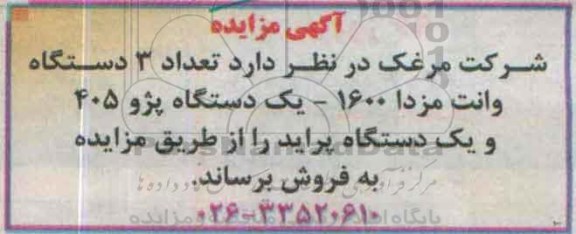 آگهی مزایده
شرکت مرغک در نظر دارد تعداد ۳ دستگاه
وانت مزدا ۱۶۰۰ - یک دستگاه پژو ۴۰۵
و یک دستگاه پراید را از طریق مزایده
به فروش برساند.
۰۲۶-۳۳۵۲۰۶۱۰